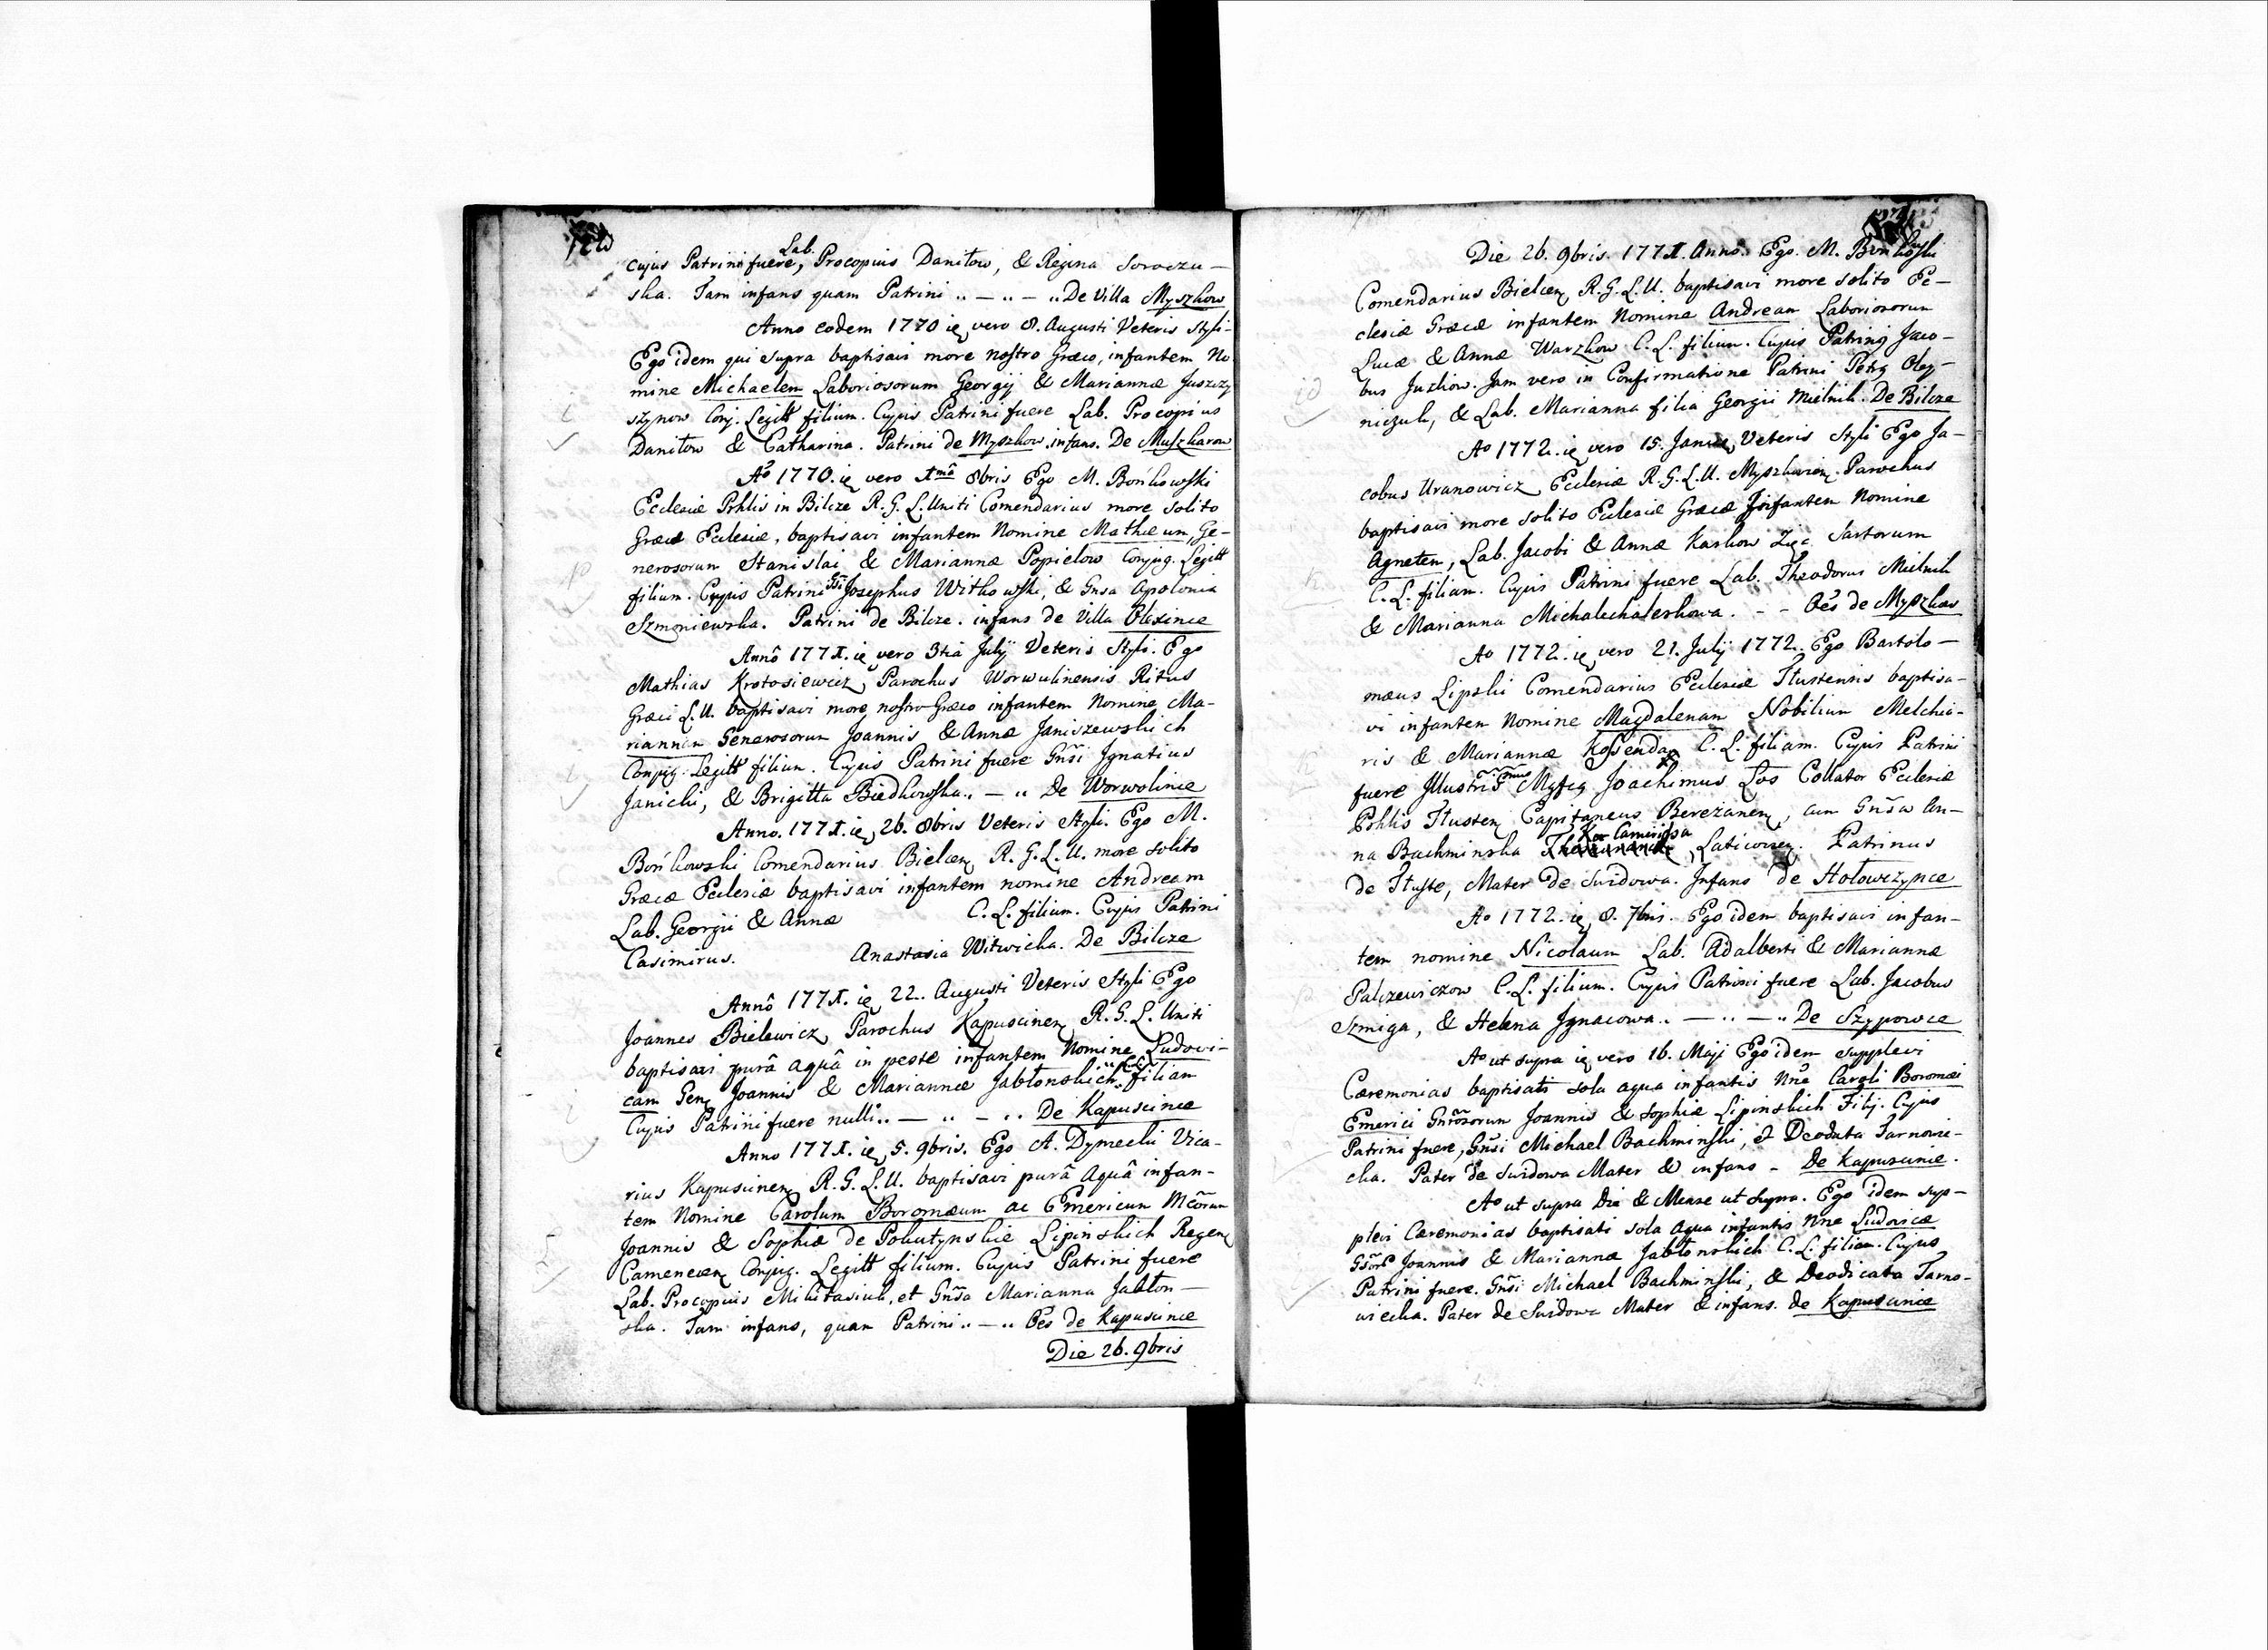 cujus Patrini fuere, Lab. Procopius Daniłow, & Regina Soroczu-
ska. Tam infans quam Patrini .. — .. — .. De Villa Myszkow
Anno eodem 1770 ię vero 8. Augusti Veteris Styli.
Ego idem qui supra baptisavi more nostro Græco, infantem No
mine Michaelem Laboriosorum Georgij & Mariannæ Juszczy
szynow Conj. Legitt filium. Cujus Patrini fuere Lab. Procopius
Daniłow & Catharina. Patrini de Myszkow. infans. De Muszkarow
Ao 1770. ię vero 1mâ 8bris Ego M. Bońkowski
Ecclesiæ Prhlis in Bilcze R. G. L. Uniti Comendarius more solito
Græcæ Ecclesiæ, baptisavi infantem Nomine Mathæum, Ge-
nerosorum Stanislai & Mariannæ Popielow Conjug. Legitt
filium. Cujus Patrini Gsi Josephus Witkowski, & Gnsa Apolonia
Szmoniewska. Patrini de Bilcze. infans de Villa Olexince
Annô 1771. ię vero 3tia Julij Veteris Styli. Ego
Mathias Krotosiewicz, Parochus Worwulinensis Ritus
Græci L. U. baptisavi more nostro Græco infantem Nomine Ma-
riannam Generosorum Joannis & Annæ Janiszewskich
Conjug. Legitt filiam. Cujus Patrini fuere Gnsi Ignatius
Janicki, & Brigitta Biedkowska .. — .. De Worwolince
Anno. 1771. ię, 26. 8bris Veteris Styli. Ego M.
Bońkowski Comendarius Bielcen R. G. L. U. more solito
Græcæ Ecclesiæ baptisavi infantem nomine Andream
Lab. Georgii & Annæ C. L. filium. Cujus Patrini
Casimirus. Anastasia Witwicka. De Bilcze
Annô 1771. ię 22. Augusti Veteris Styli Ego
Joannes Bielewicz, Parochus Kapuscinen, R. G. L. Uniti
baptisavi purâ aquâ in peste infantem Nomine Ludovi-
cam Gen, Joannis & Mariannæ Jabłonskich. C.L. filiam
Cujus Patrini fuere nulli .. — .. — .. De Kapuscince
Anno 1771. ię, 5. 9bris. Ego A. Dymecki Vica-
rius Kapuscinen, R. G. L. U. baptisavi purâ aquâ infan-
tem Nomine Carolum Boromæum ac Emericum Mcõrum
Joannis & Sophiæ de Pohutynskie Lipinskich Regen
Camenecen, Conjug. Legitt filium. Cujus Patrini fuere
Lab. Procopius Mikitasiuk, et Gnsa Marianna Jabłon-
ska. Tam infans, quam Patrini .. — .. Oes de Kapuscince
Die 26. 9bris
Die 26. 9bris. 1771. Anno. Ego. M. Bonkowski
Comendarius Bielcen, R. G. L. U. baptisavi more solito Ec-
clesiæ Græcæ infantem Nomine Andream Laboriosorum
Lucæ & Annæ Warzkow C. L. filium. Cujus Patrinus Jaco-
bus Juzkow. Jam vero in Confirmatione Patrini Petrus Oley-
niczuk, & Lab. Marianna filia Georgii Mielnik. De Bilcze
Ao 1772. ię vero 15. Janua, Veteris Styli Ego Ja-
cobus Uranowicz Ecclesiæ R. G. L. U. Myszkovien, Parochus
baptisavi more solito Ecclesiæ Græcæ Infantem Nomine
Agneten, Lab. Jacobi & Annæ Karkow Zięc Sartorum
C. L. filiam. Cujus Patrini fuere Lab. Theodorus Mielnik
& Marianna Michalichaleskowa. - - Oes de Myszkow
Ao 1772. ię vero 21. Julij 1772. Ego Bartolo-
mæus Lipski Comendarius Ecclesiæ Tłustensis baptisa-
vi infantem Nomine Magdalenam Nobilium Melchio-
ris & Mariannæ Kossendow C. L. filiam. Cujus Patrini
fuere Illustris Mgfcg Joachimus Los Collator Ecclesiæ
Prhlis Tłusten, Capitaneus Berezanen, cum Gnsa An-
na Bachminska Latiovien. Patrinus
de Tłuste, Mater de Swidowa. Infans de Hołowczynce
Ao 1772. ię 8. 7bris. Ego idem baptisavi infan-
tem nomine Nicolaum Lab. Adalberti & Mariannæ
Palczewiczow C. L. filium. Cujus Patrini fuere Lab. Jacobus
Szmiga, & Helena Ignacowa .. — .. — .. De Szypowce
Ao ut supra ię vero 16. Maji Ego idem supplevi
Cæremonias baptisati sola aqua infantis Nne Caroli Boromæi
Emerici Gnrosorum Joannis & Sophiæ Lipinskich Filij. Cujus
Patrini fuere, Gnsi Michael Bachminski, & Deodata Tarnowie-
cka. Pater de Swidowa Mater & infans - De Kapuscince.
Ao ut supra Die & Mense ut supra. Ego idem sup-
plevi Cæremonias baptisati sola aqua infantis Nne Ludovicæ
Gsorum Joannis & Mariannæ Jabłonskich C. L. filiam. Cujus
Patrini fuere. Gnsi Michael Bachminski, & Deodicata Tarno-
wiecka. Pater de Swidowa Mater & infans. de Kapuscince